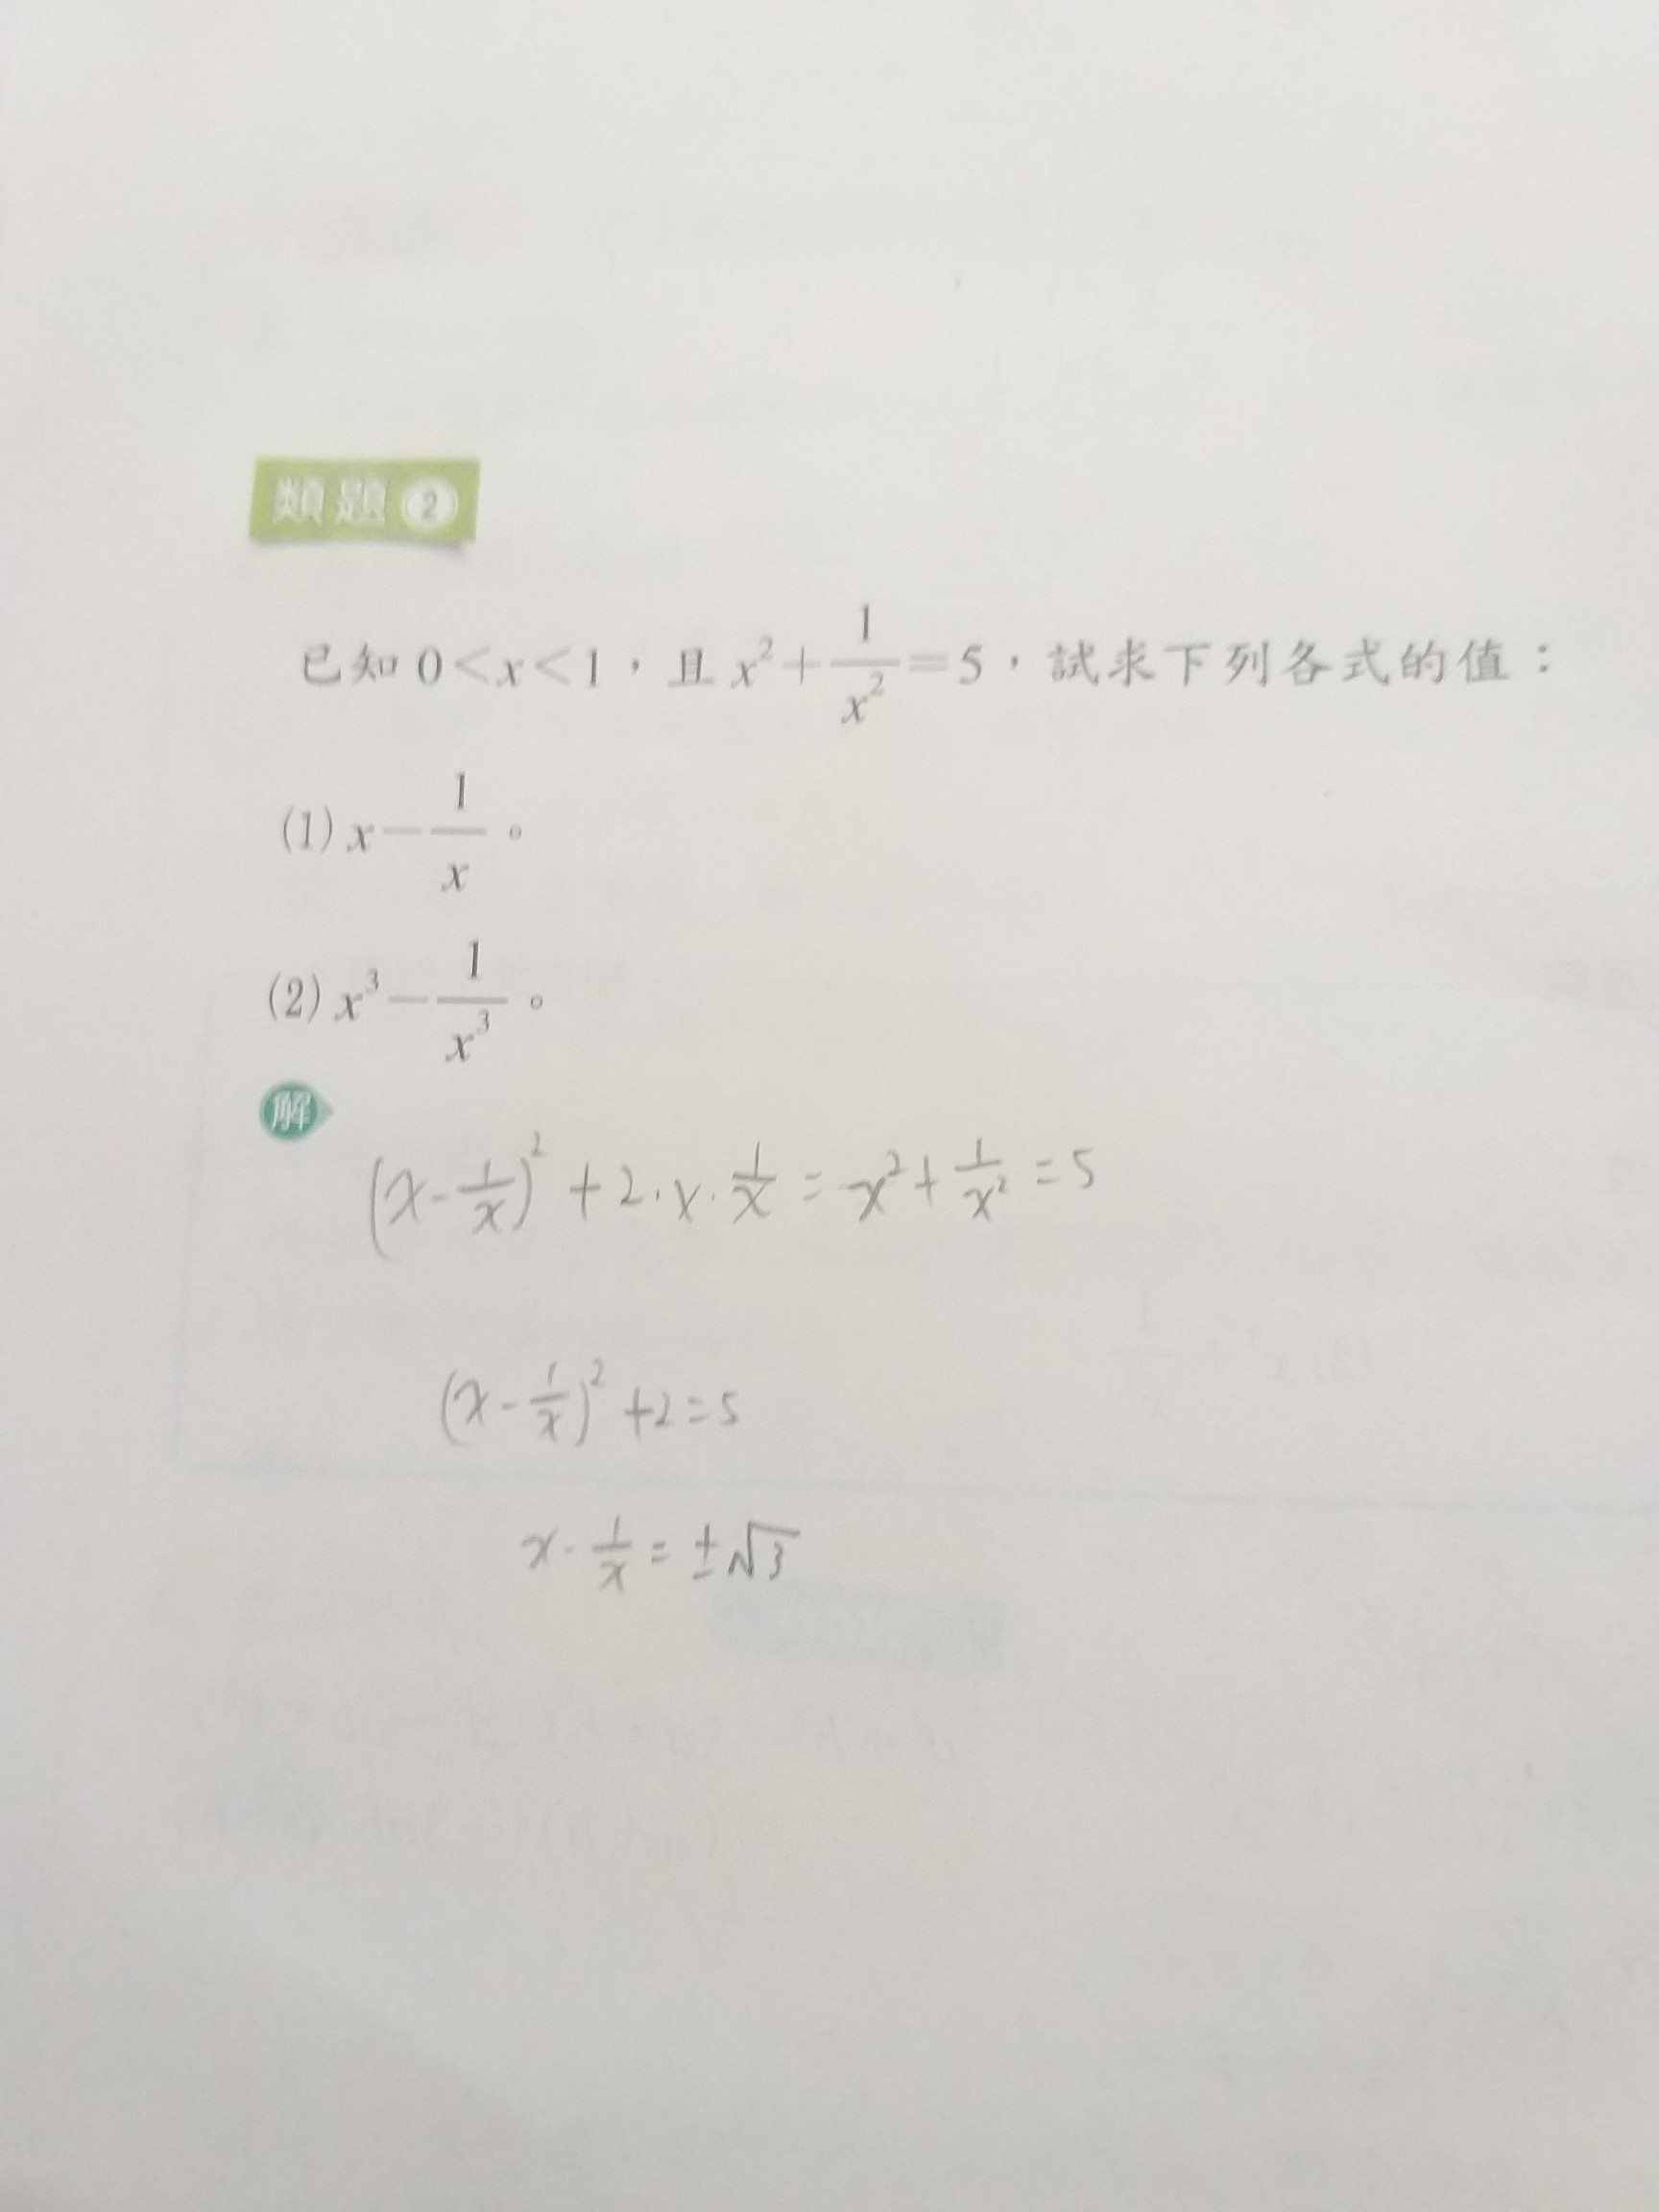 類題 2
已知 0<x<1，且 x²+1/x²=5，試求下列各式的值：
(1) x－1/x。
(2) x³－1/x³。
解
(x-1/x)²+2·x·1/x=x²+1/x²=5
(x-1/x)²+2=5
x-1/x=±√3